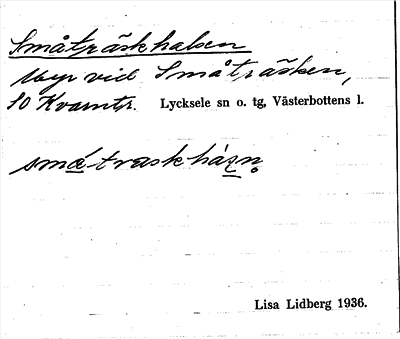 Småträskhalsen
Myr vid Småträsken,
SO Kvarntr. Lycksele sn o. tg, Västerbottens l.
smǻtraskhàzn̥
Lisa Lidberg 1936.